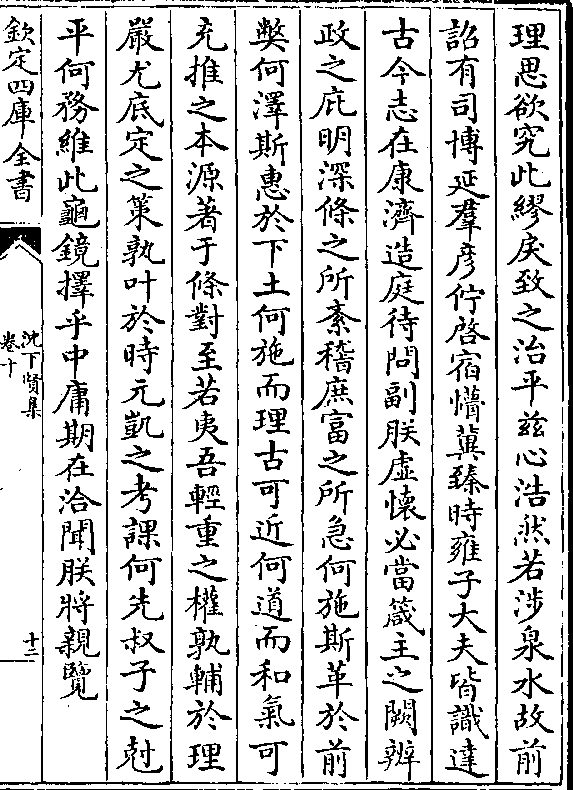 理思欲究此繆戾致之治平兹心浩然若涉泉水故前
詔有司博延羣彦佇啓宿懵冀臻時雍子大夫皆識達
古今志在康濟造庭待問副朕虚懷必當箴主之闕辨
政之庇明深條之所紊稽庶富之所急何施斯革於前
弊何澤斯惠於下土何施而理古可近何道而和氣可
充推之本源著于條對至若夷吾輕重之權孰輔於理
嚴尤底定之策孰叶於時元凱之考課何先叔子之尅
平何務維此龜鏡擇乎中庸期在洽聞朕將親覽
欽定四庫全書
沈下賢集
卷十
十二